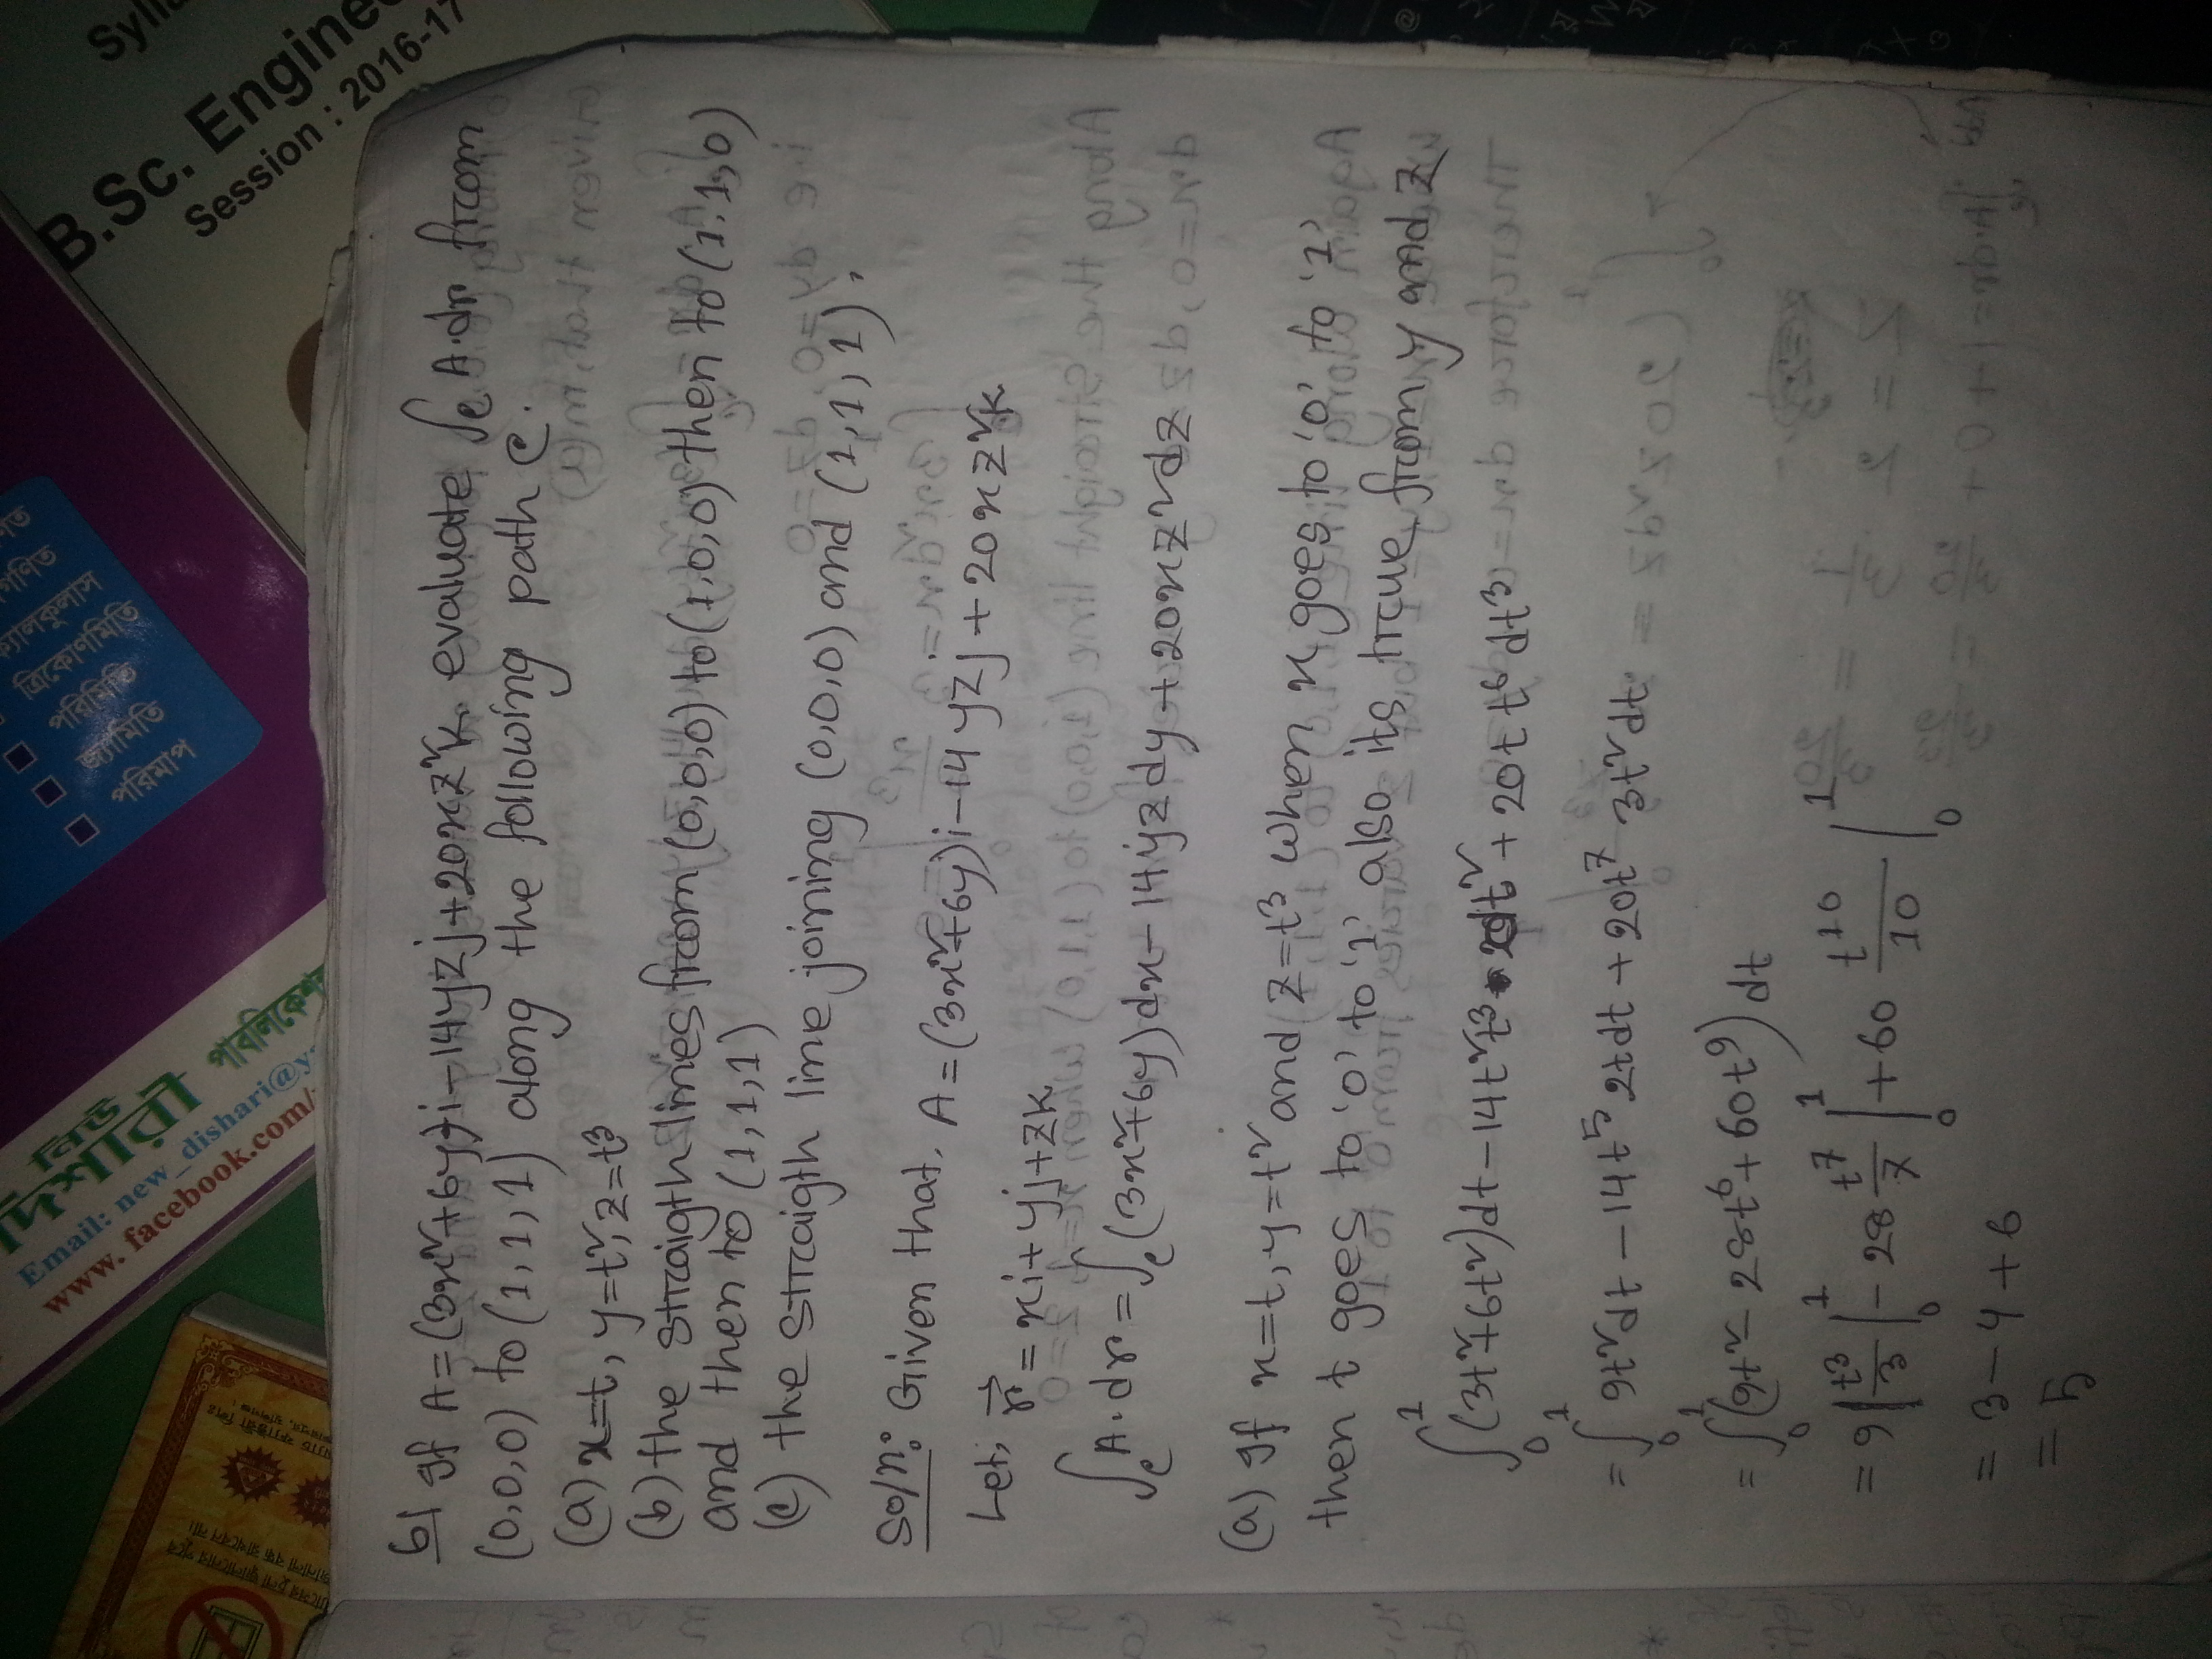 নিউ
দিশারী পাবলিকেশ
Email: new_dishari@y
www.facebook.com/
ক্যালকুলাস
ত্রিকোণমিতি
পরিমিতি
জ্যামিতি
পরিমাপ
B.Sc. Enginee
Session : 2016-17
Sylla
6| If A=(3x²+6y)i-14yzj+20xz²k evaluate ∫c A.dr from
(0,0,0) to (1,1,1) along the following path c.
(a) x=t, y=t², z=t³
(b) the straigth lines from (0,0,0) to (1,0,0) then to (1,1,0)
and then to (1,1,1)
(c) the straigth line joining (0,0,0) and (1,1,1).
Soln: Given that, A=(3x²+6y)i-14yzj+20xz²k
Let, r⃗ = xi+yj+zk
∫c A.dr = ∫c (3x²+6y)dx-14yzdy+20xz²dz
(a) If x=t, y=t² and z=t³ when x goes to '0' to '1'
then t goes to '0' to '1' also its true from y and z
∫₀¹ (3t²+6t²)dt-14t²t³ dt²+20t t⁶ dt³
= ∫₀¹ 9t²dt-14t⁵ 2tdt+20t⁷ 3t²dt
= ∫₀¹ (9t²-28t⁶+60t⁹)dt
= 9|t³/3|₀¹ - 28 t⁷/7|₀¹ + 60 t¹⁰/10|₀¹
= 3-4+6
= 5